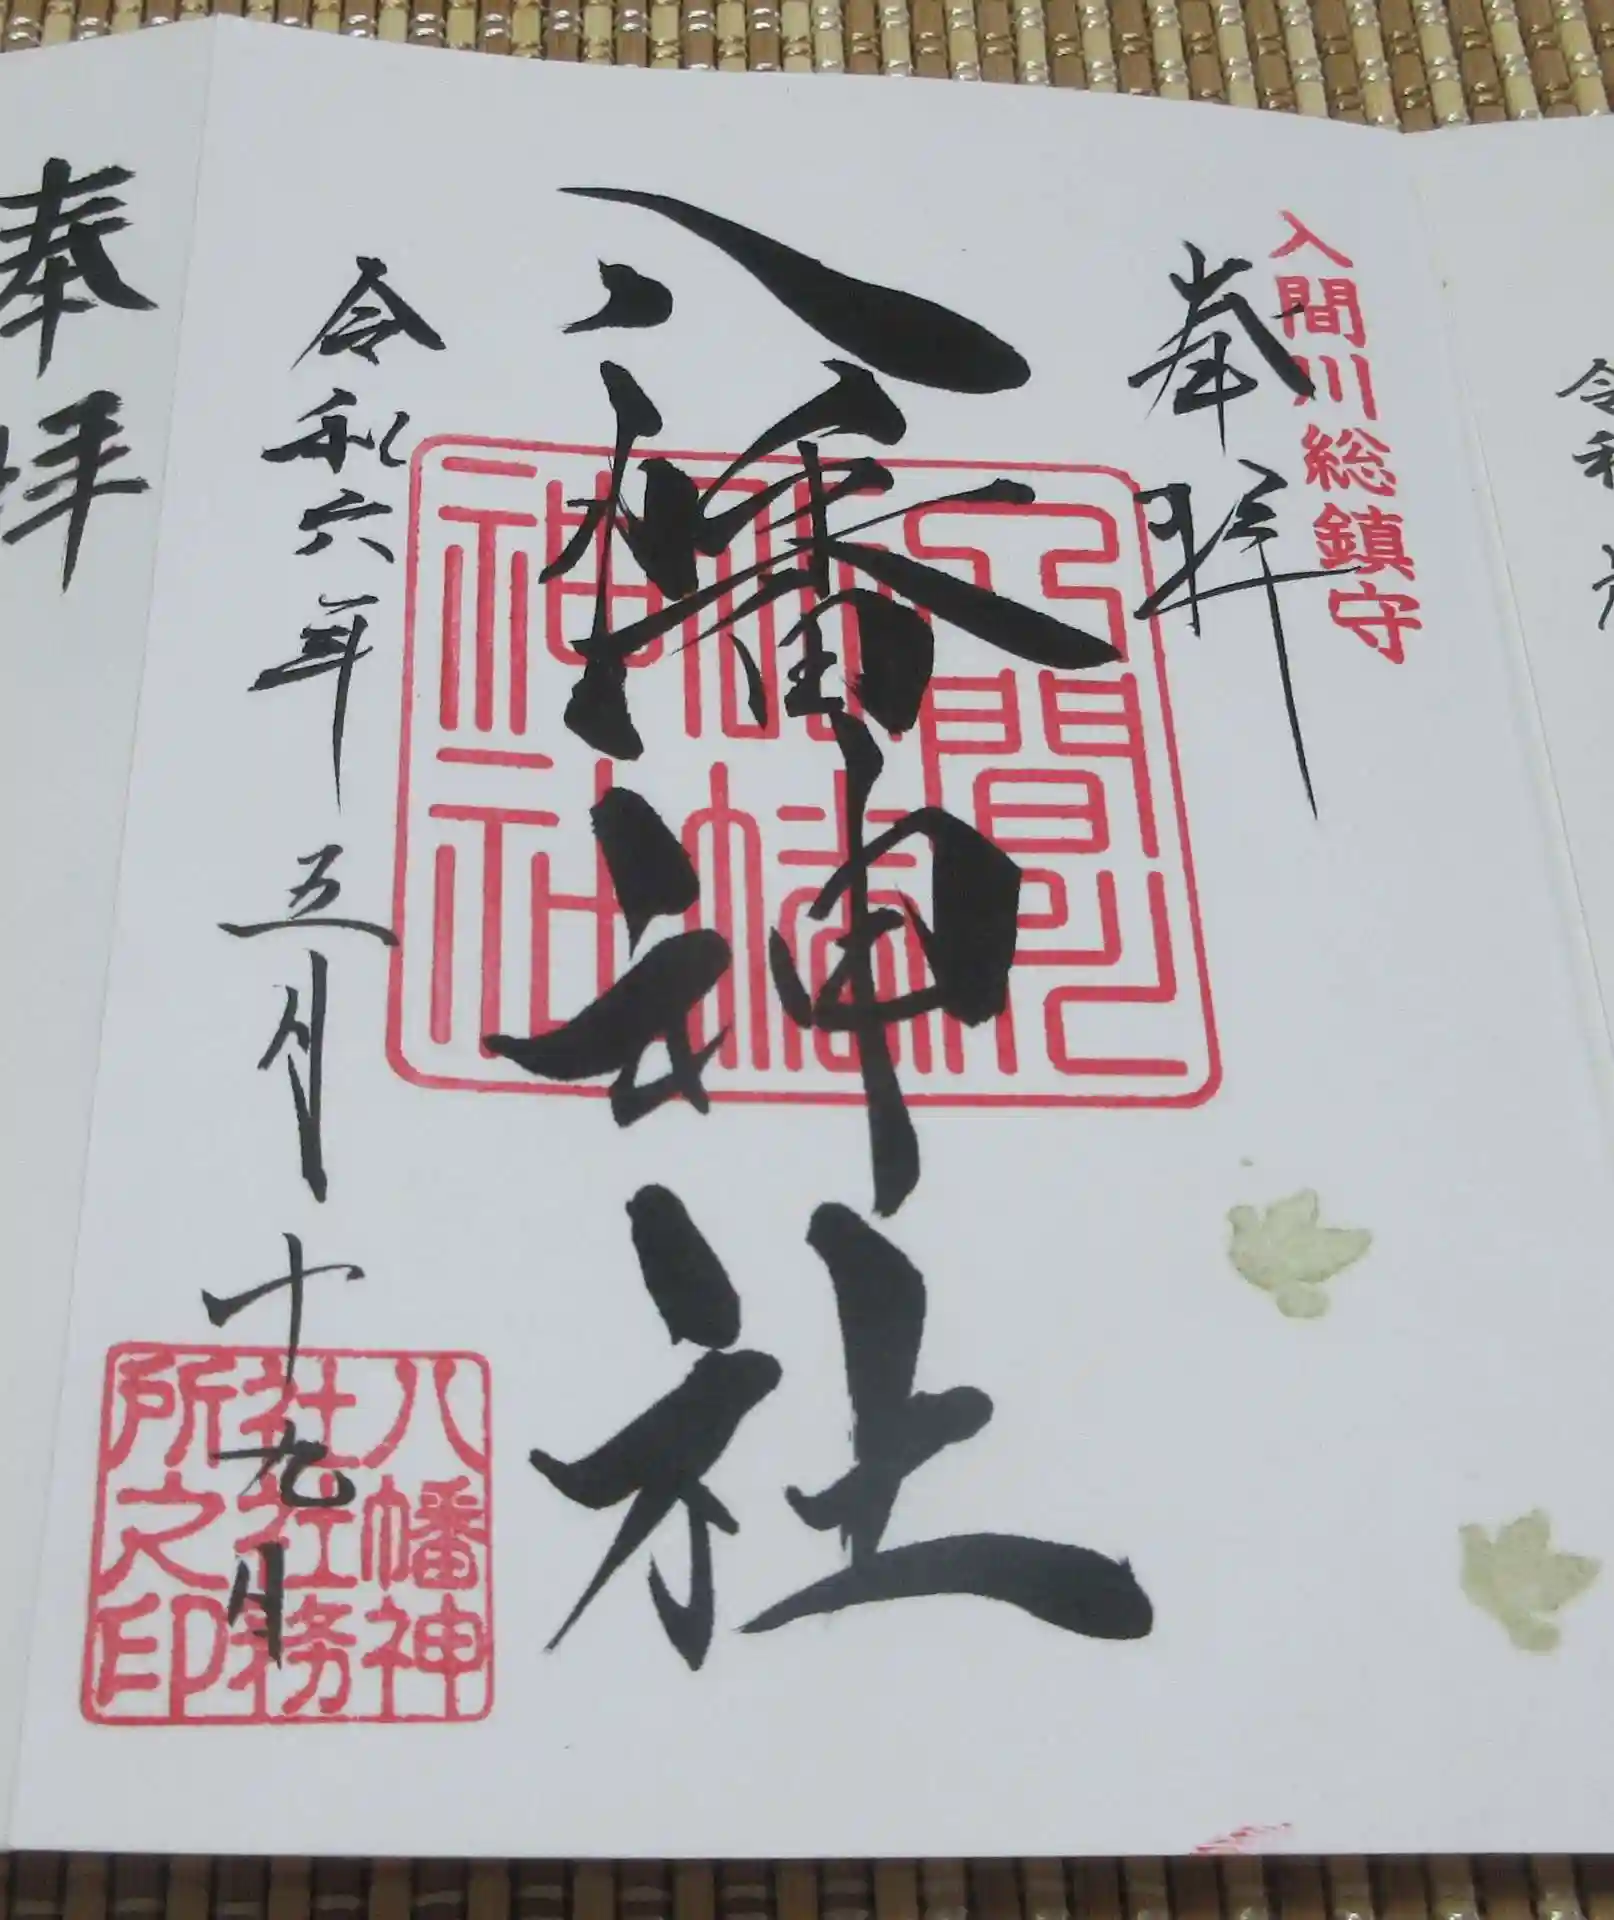 入間川総鎮守
奉拝
八幡神社
令和六年五月十九日
八幡神
社社務
所之印
奉拝
令和